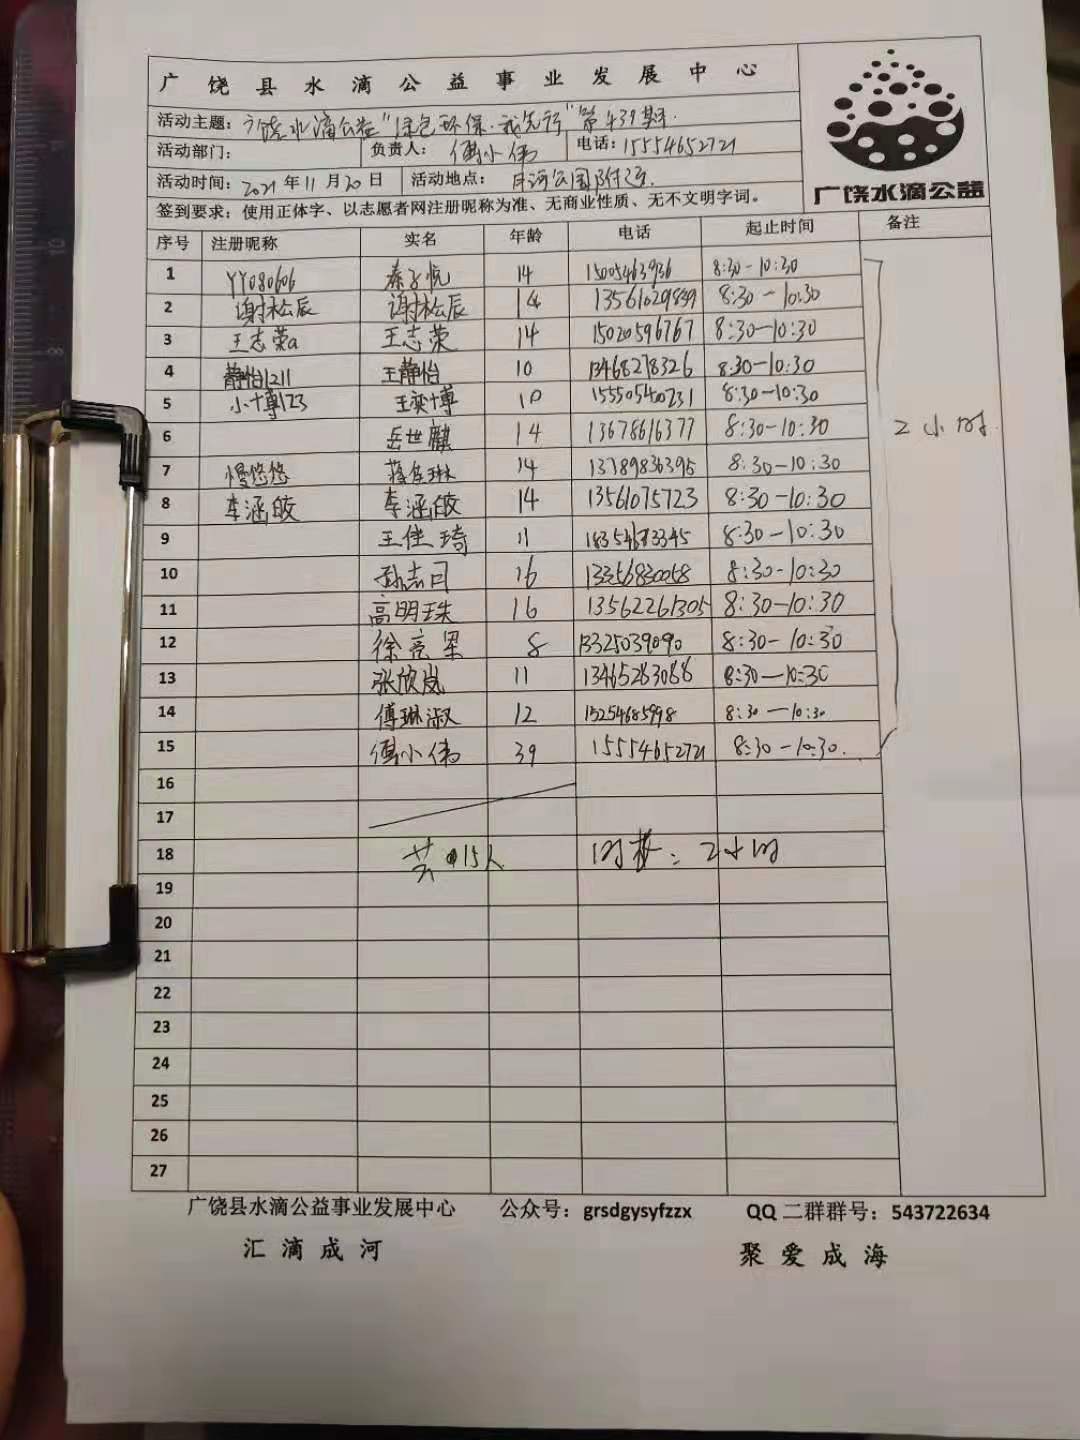 广饶县水滴公益事业发展中心
活动主题：广饶水滴公益"绿色环保·我先行"第439期
活动部门： 负责人：傅小伟 电话：15554652721
活动时间：2021年11月20日 活动地点：月河公园附近
广饶水滴公益
签到要求：使用正体字、以志愿者网注册昵称为准、无商业性质、无不文明字词。
序号 注册昵称 实名 年龄 电话 起止时间 备注
1 YY080606 秦子悦 14 15005463936 8:30-10:30
2 谢松辰 谢松辰 14 13561029839 8:30-10:30
3 王志荣a 王志荣 14 15020596767 8:30-10:30
4 静怡1211 王静怡 10 13468278326 8:30-10:30
5 小博123 王奕博 10 15550540231 8:30-10:30
6 岳世麒 14 13678616377 8:30-10:30
2小时.
7 慢悠悠 14 13789836395 8:30-10:30
8 李涵皎 李涵皎 14 13561075723 8:30-10:30
9 王佳琦 11 18354683345 8:30-10:30
10 16 13356830058 8:30-10:30
11 高明珠 16 13562261305 8:30-10:30
12 徐亮梁 8 13325039090 8:30-10:30
13 张欣岚 11 13465263088 8:30-10:30
14 傅琳淑 12 15254685998 8:30-10:30
15 傅小伟 39 15554652721 8:30-10:30.
16
17
18 共15人 时长：2小时
19
20
21
22
23
24
25
26
27
广饶县水滴公益事业发展中心 公众号：grsdgysyfzzx QQ二群群号：543722634
汇滴成河 聚爱成海